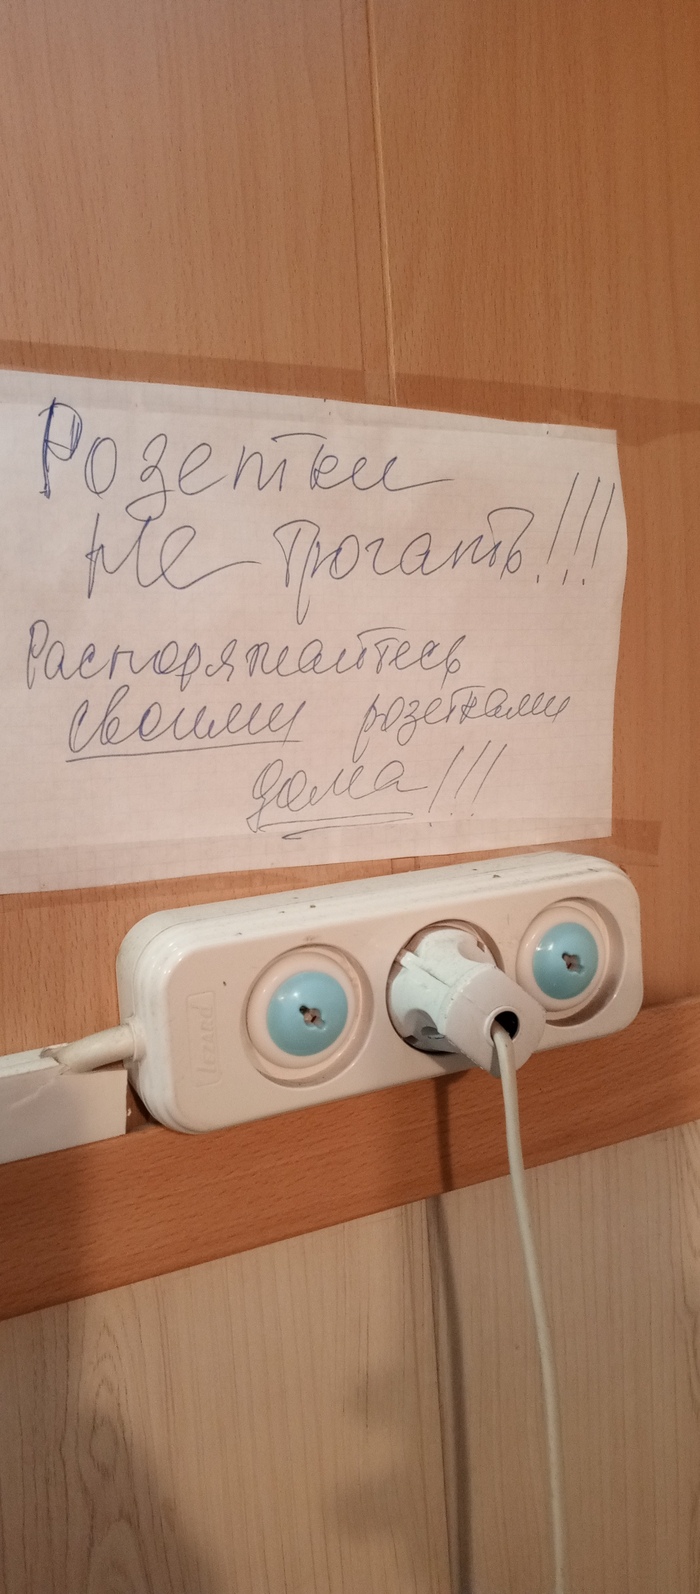 Розетки
не трогать!!!
Распоряжайтесь
своими розетками
дома!!!
Lezard